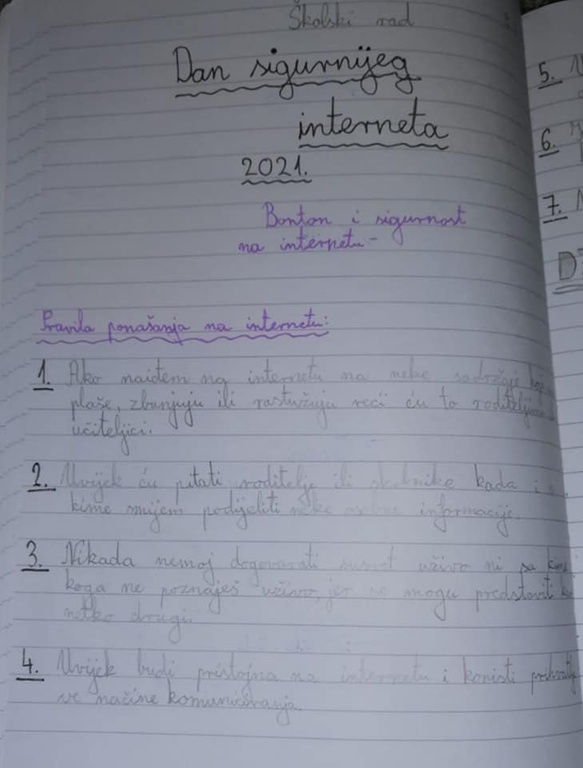 Školski rad
Dan sigurnijeg
interneta
2021.
Bonton i sigurnost
na internetu-
Pravila ponašanja na internetu:
1. Ako naiđem na internetu na neke sadržaji koji
plaše, zbunjuju ili rastužuju reći ću to roditeljima
učiteljici.
2. Uvijek ću pitati roditelje ili skrbnike kada i s
kime smijem podijeliti neke osobne informacije.
3. Nikada nemoj dogovarati susret uživo ni sa kim
koga ne poznaješ uživo, jer se mogu predstaviti
netko drugi.
4. Uvijek budi pristojna na internetu i koristi prihvatlji
ve načine komuniciranja.
5.
6.
7.
D